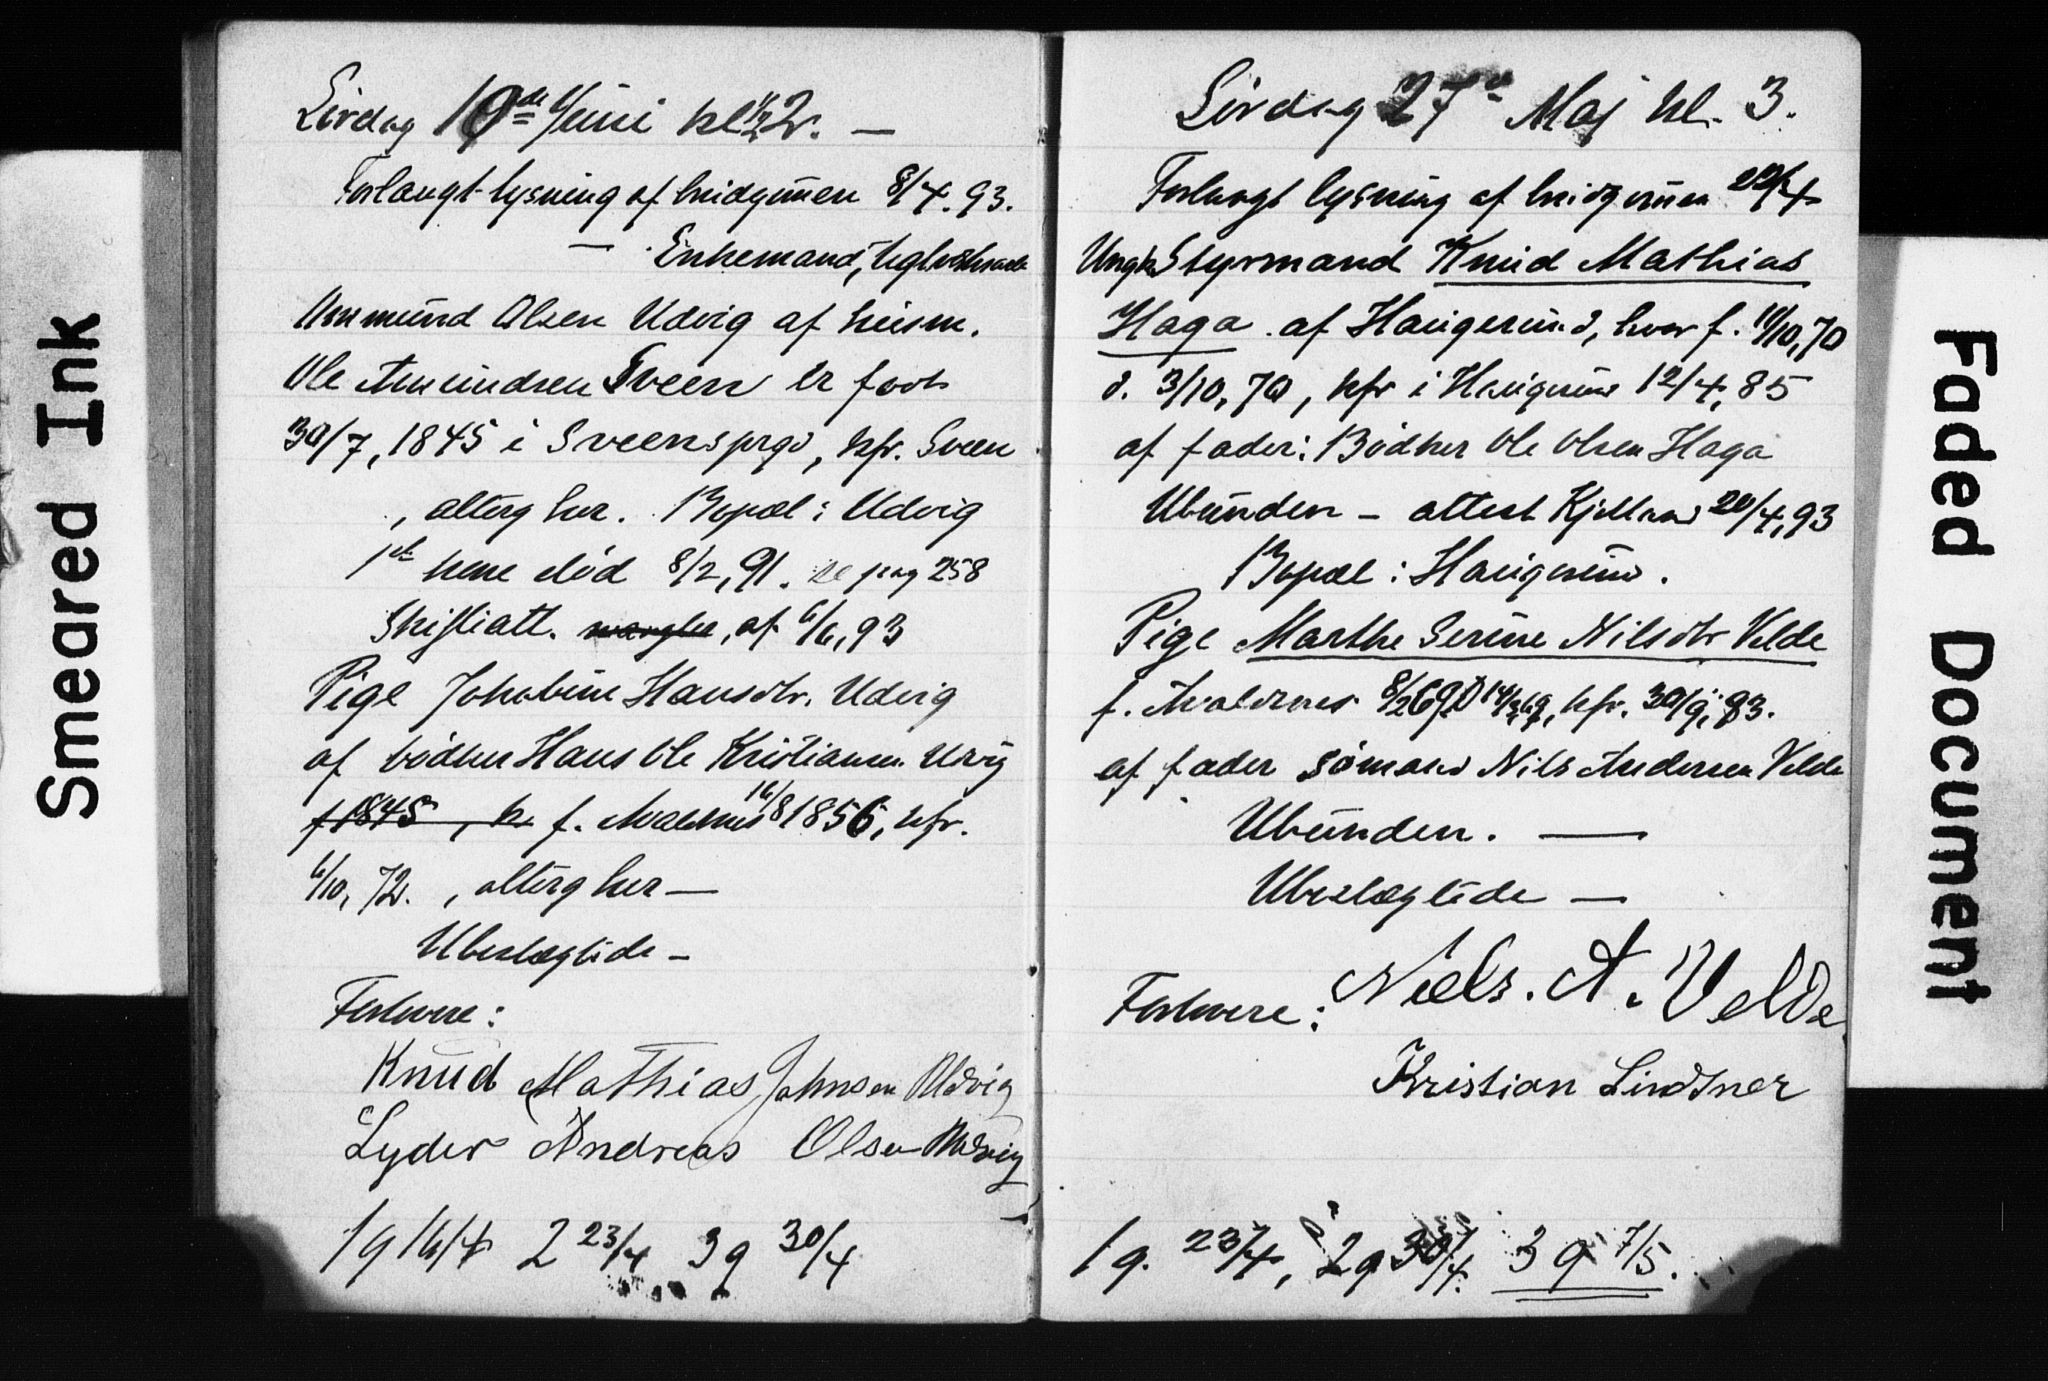 Smeared Ink
Lørdag 10de Juni kl 1/2 2. —
Forlangt lysning af brudgummen 8/4.93.
— Enkemand,
Ommund Olsen Udvig af husm.
Ole Amundsen Sveen er født
30/7, 1845 i Sveens prgd, kfr. Sveen
, alterg her. Bopæl: Udvig
1ste kone død 8/2, 91. se pag 258
Skifteatt. mangler, af 6/6, 93
Pige Johabine Hansdtr. Udvig
af bødker Hans Ole Kristiansen Udvig
f 1845, k f. Avaldsnes 16/8 1856, kfr.
6/10, 72. , alterg her —
Ubeslægtede —
Forlovere:
Knud Mathias Johnsen Udvig
Lyder Andreas Olsen Udvig
1g 16/4 2 23/4 3g 30/4
Lørdag 27de Maj kl. 3.
Forlangt lysning af brudgummen 22/4
Ungk Styrmand Knud Mathias
Haga af Haugesund, hvor f. 11/10, 70
d. 3/10, 70, kfr i Haugesund 12/4, 85
af fader: Bødker Ole Olsen Haga
Ubunden — attest Kjelland 20/4, 93
Bopæl: Haugesund.
Pige Marthe Serine Nilsdtr Velde
f. Avaldsnes 8/2 69, D 14/3 69, kfr. 30/9, 83.
af fader Sømand Nils Andersen Velde
Ubunden. —
Ubeslægtede —
Forlovere: Niels. A. Velde
Kristian Lindtner
1g. 23/4, 2g 30/4. 3g 7/5.
Faded Document